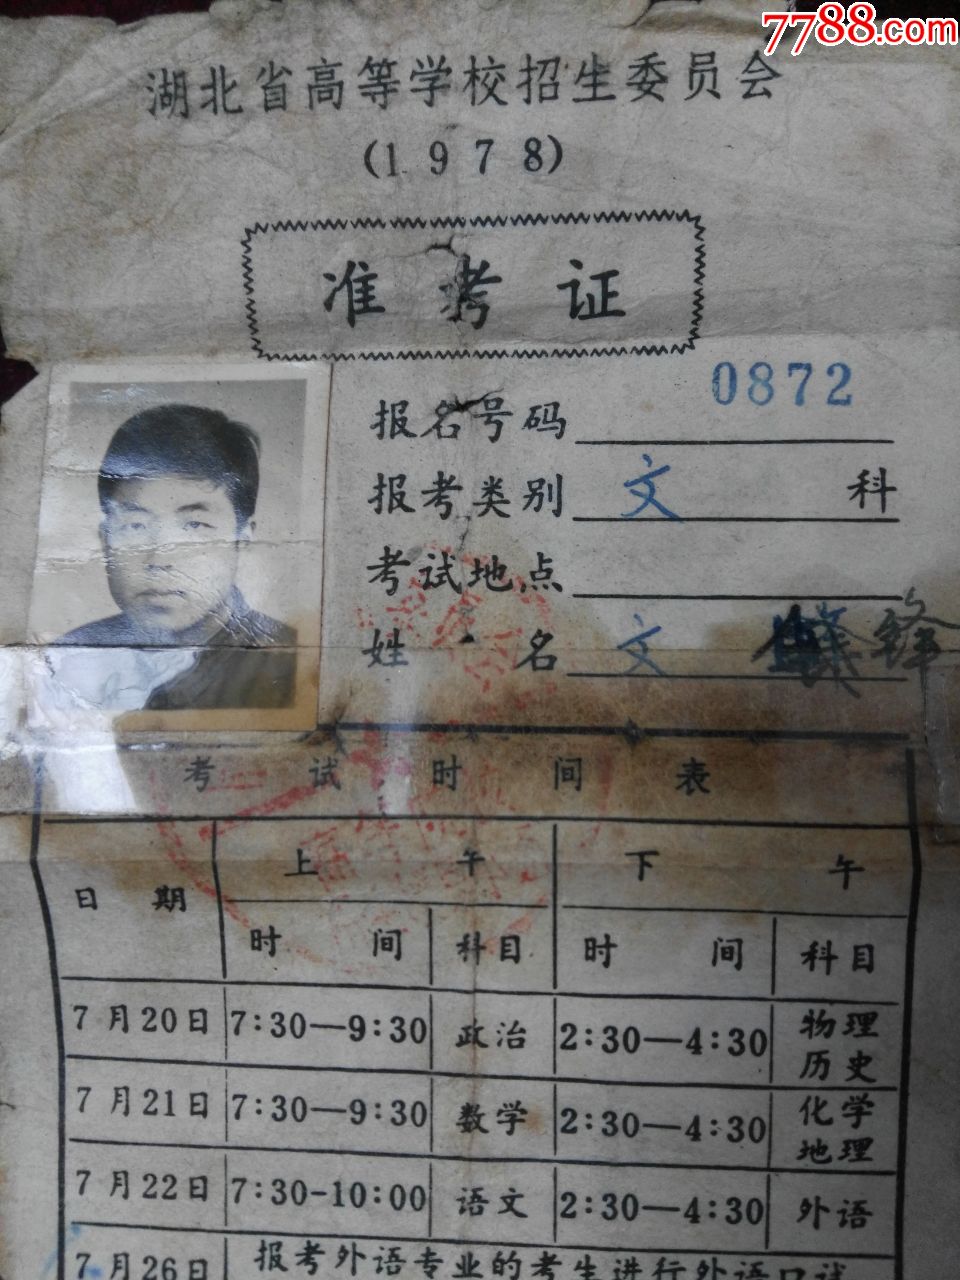 7788.com
湖北省高等学校招生委员会
(1978)
准考证
报名号码 0872
报考类别 文 科
考试地点
姓名 文 锋
考试时间表
日期 上午 下午
时间 科目 时间 科目
7月20日 7:30—9:30 政治 2:30—4:30 物理 历史
7月21日 7:30—9:30 数学 2:30—4:30 化学 地理
7月22日 7:30-10:00 语文 2:30—4:30 外语
7月26日 报考外语专业的考生进行外语口试